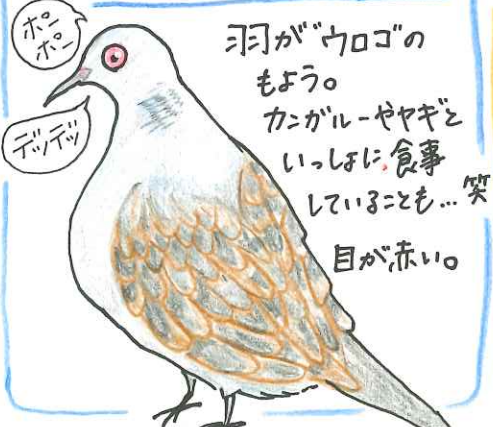 ポー
ポー
デッデッ
羽が"ウロゴの
もよう。
カンガルーやヤギと
いっしょに、食事
していることも…笑
目が、赤い。